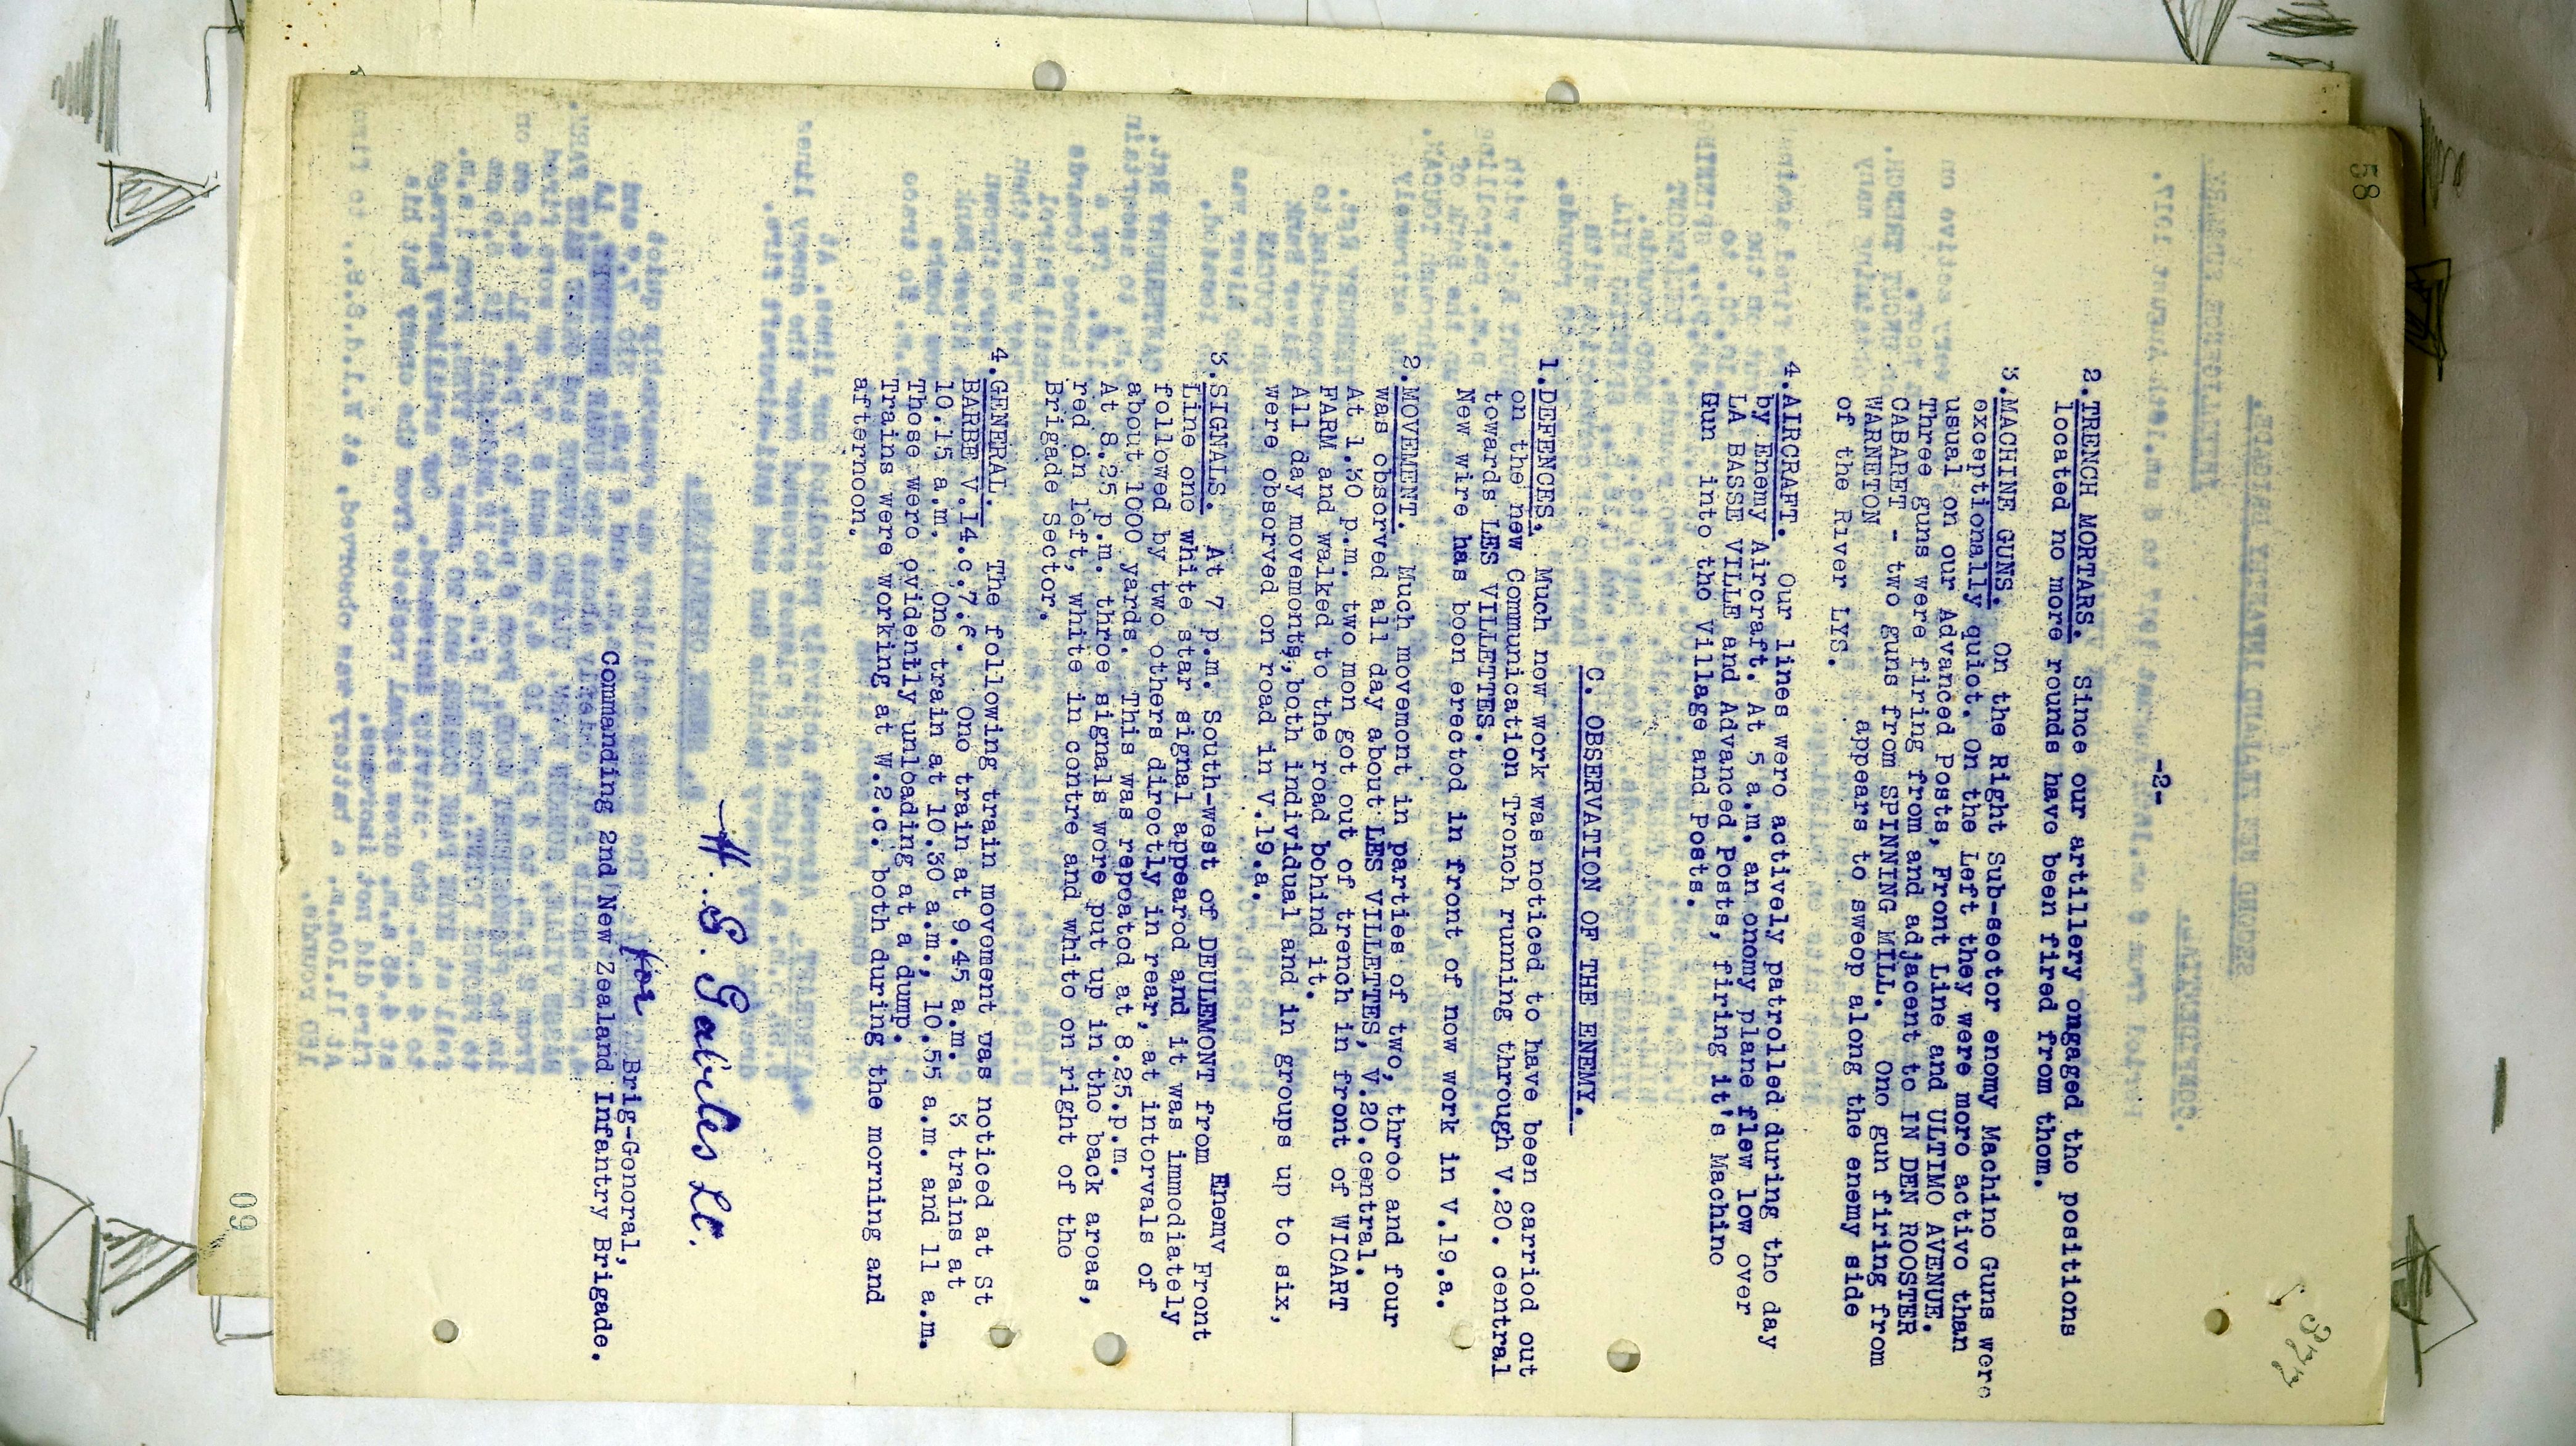 58
322
-2-
2.TRENCH MORTARS. Since our artillery engaged the positions
located no more rounds have been fired from them.
3.MACHINE GUNS. On the Right Sub-sector enemy Machine Guns were
exceptionally quiet. On the Left they were more active than
usual on our Advanced Posts, Front Line and ULTIMO AVENUE.
Three guns were firing from and adjacent to IN DEN ROOSTER
CABARET - two guns from SPINNING MILL. One gun firing from
WARNETON appears to sweep along the enemy side
of the River LYS.
4.AIRCRAFT. Our lines were actively patrolled during the day
by Enemy Aircraft. At 5 a.m. an enemy plane flew low over
LA BASSE VILLE and Advanced Posts, firing it's Machine
Gun into the Village and Posts.
C. OBSERVATION OF THE ENEMY.
1.DEFENCES. Much new work was noticed to have been carried out
on the new Communication Trench running through V.20. central
towards LES VILLETTES.
New wire has been erected in front of new work in V.19.a.
2.MOVEMENT. Much movement in parties of two, three and four
was observed all day about LES VILLETTES, V.20.central.
At 1.30 p.m. two men got out of trench in front of WICART
FARM and walked to the road behind it.
All day movements, both individual and in groups up to six,
were observed on road in V.19.a.
3.SIGNALS. At 7 p.m. South-west of DEULEMONT from Enemy Front
Line one white star signal appeared and it was immediately
followed by two others directly in rear, at intervals of
about 1000 yards. This was repeated at 8.25.p.m.
At 8.25 p.m. three signals were put up in the back areas,
red on left, white in centre and white on right of the
Brigade Sector.
4.GENERAL. The following train movement was noticed at St
BARBE V.14.c.7.6. One train at 9.45 a.m. 3 trains at
10.15 a.m. One train at 10.30 a.m., 10.55 a.m. and 11 a.m.
These were evidently unloading at a dump.
Trains were working at W.2.c. both during the morning and
afternoon.
H. S. Gabites Lt.
for Brig-General,
Commanding 2nd New Zealand Infantry Brigade.
60